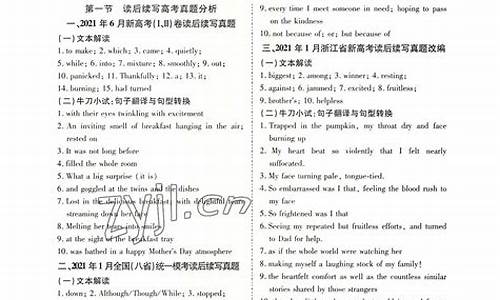 第一节 读后续写高考真题分析
一、2021年6月新高考(I,II)卷读后续写真题
(一)文本解读
1. to make; 2. which; 3. came; 4. quietly;
5. while; 6. into; 7. mixture; 8. smoothly; 9. out;
10. panicked; 11. Thankfully; 12. a; 13. it;
14. burning; 15. had turned
(二)牛刀小试:句子翻译与句型转换
1. with their eyes twinkling with excitement
2. An inviting smell of breakfast hanging in the air;
rested on
3. It was not long before
4. filled the whole room
5. What a big surprise (it is)
6. and goggled at the twins and the dishes
7. Lost in the delicious breakfast, with delightful tears
streaming down her face
8. Melting her tears into smiles
9. at the sight of the breakfast tray
10. was bathed in a happy Mother's Day atmosphere
二、2021年1月全国(八省)统一模考读后续写真题
(一)文本解读
1. down; 2. Although/Though/While; 3. stopped;
9. every time I meet someone in need; hoping to pass
on the kindness
10. not because of; or; but because of
三、2021年1月浙江省新高考读后续写真题改编
(一)文本解读
1. biggest; 2. among; 3. winner; 4. resting;
5. against; 6. jammed; 7. excited; 8. fruitless;
9. brother's; 10. helpless
(二)牛刀小试:句子翻译与句型转换
1. Trapped in the pumpkin, my throat dry and face
burning up
2. My heart beat so violently that I felt nearly
suffocated.
3. My face turning pale, tongue-tied.
4. So embarrassed was I that, feeling the blood rush to
my face
5. So frightened was I that
6. Seeing my repeated but fruitless efforts, and turned
to Dad for help.
7. as if the whole world were watching her
8. making myself a laughing stock of my family!
9. the heartfelt comfort as well as the constant similar
stories shared by those strangers
zyjl.cn